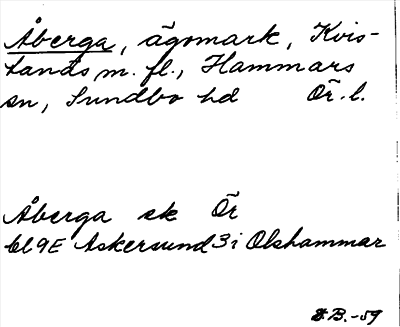 Åberga, ägomark, Kvis-
tands m. fl., Hammars
sn, Sundbo hd Ör. l.
Åberga ek Ör
bl 9E Askersund 3i Olshammar
B.-59